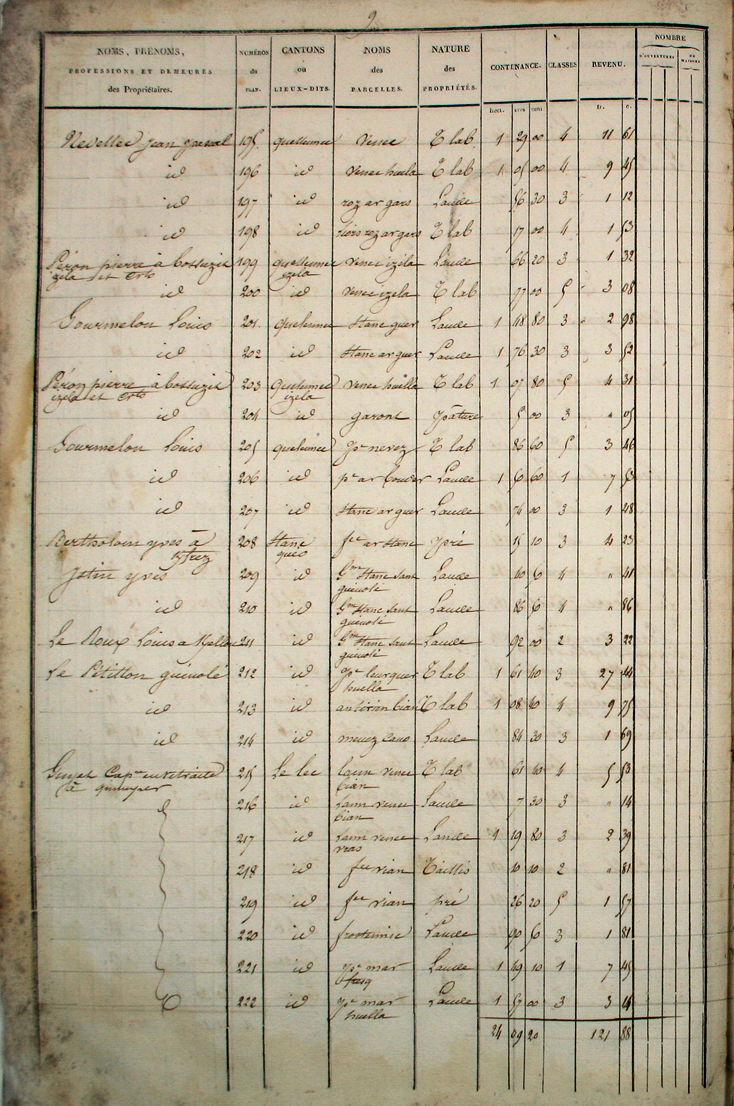 9
NOMS, PRÉNOMS, PROFESSIONS ET DEMEURES des Propriétaires. NUMÉROS du PLAN. CANTONS ou LIEUX-DITS. NOMS des PARCELLES. NATURE des PROPRIÉTÉS. CONTENANCE. CLASSES REVENU. NOMBRE D'OUVERTURES DE MAISONS
hect. ares cent. fr. c.
Nevellec jean pascal 195 quellennec venec T lab 1 29 00 4 11 61
id 196 id venec huela T lab 1 05 00 4 9 45
id 197 id roz ar gars Lande 56 30 3 1 12
id 198 id roz ar gars T lab 17 00 4 1 53
Péron pierre à bostuzic 199 quellennec venec izela Lande 66 20 3 1 32
izela et Crts izela
id 200 id venec izela T lab 77 00 5 3 08
Gourmelon louis 201 quelennec stanc guer Lande 1 48 80 3 2 98
id 202 id stanc ar guer Lande 1 76 30 3 3 52
Péron pierre à bostuzic 203 quellennec venec huella T lab 1 07 80 5 4 31
izela et Crts izela
id 204 id garont pâture 5 00 3 " 05
Gourmelon louis 205 quelennec pc nevez T lab 86 60 5 3 46
id 206 id Lande 1 50 60 1 7 53
id 207 id stanc ar guer Lande 74 00 3 1 48
Bertholom yves à 208 Stanc fec ar stanc pré 15 10 3 4 23
queo
Jolin yves 209 id Gm stanc sant Lande 40 50 4 " 41
guénolé
id 210 id Gm stanc sant Lande 86 50 4 " 86
guénolé
Le Roux louis a 211 id Gm stanc sant Lande 92 00 2 3 22
guénolé
Le Pétillon guénolé 212 id pc leurguer T lab 1 61 40 3 27 44
huella
id 213 id bian T lab 1 08 40 4 9 75
id 214 id menez Lande 84 30 3 1 69
Capne en retraite 215 Le lec lann venec T lab 61 40 4 5 53
à quimper bian
216 id lann venec Lande 7 30 3 " 14
bian
217 id lann venec Lande 1 19 80 3 2 39
vras
218 id fec vian Taillis 10 10 2 " 81
219 id fec vian pré 26 20 5 1 57
220 id Lande 90 50 3 1 81
221 id pc mar Lande 1 49 10 1 7 45
222 id pc mar Lande 1 57 00 3 3 14
huella
24 69 20 121 88